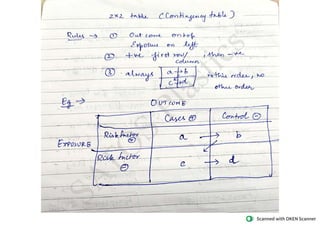 2x2 table (Contingency table)
Rules → ① Outcome on top
Exposure on left
② +ve first row/column, then -ve
③ always a→b in this order, no
c→d other order
Eg →
OUTCOME
Cases ⊕ Control ⊖
EXPOSURE Risk factor ⊕ a → b
Risk factor ⊖ c → d
Scanned with OKEN Scanner